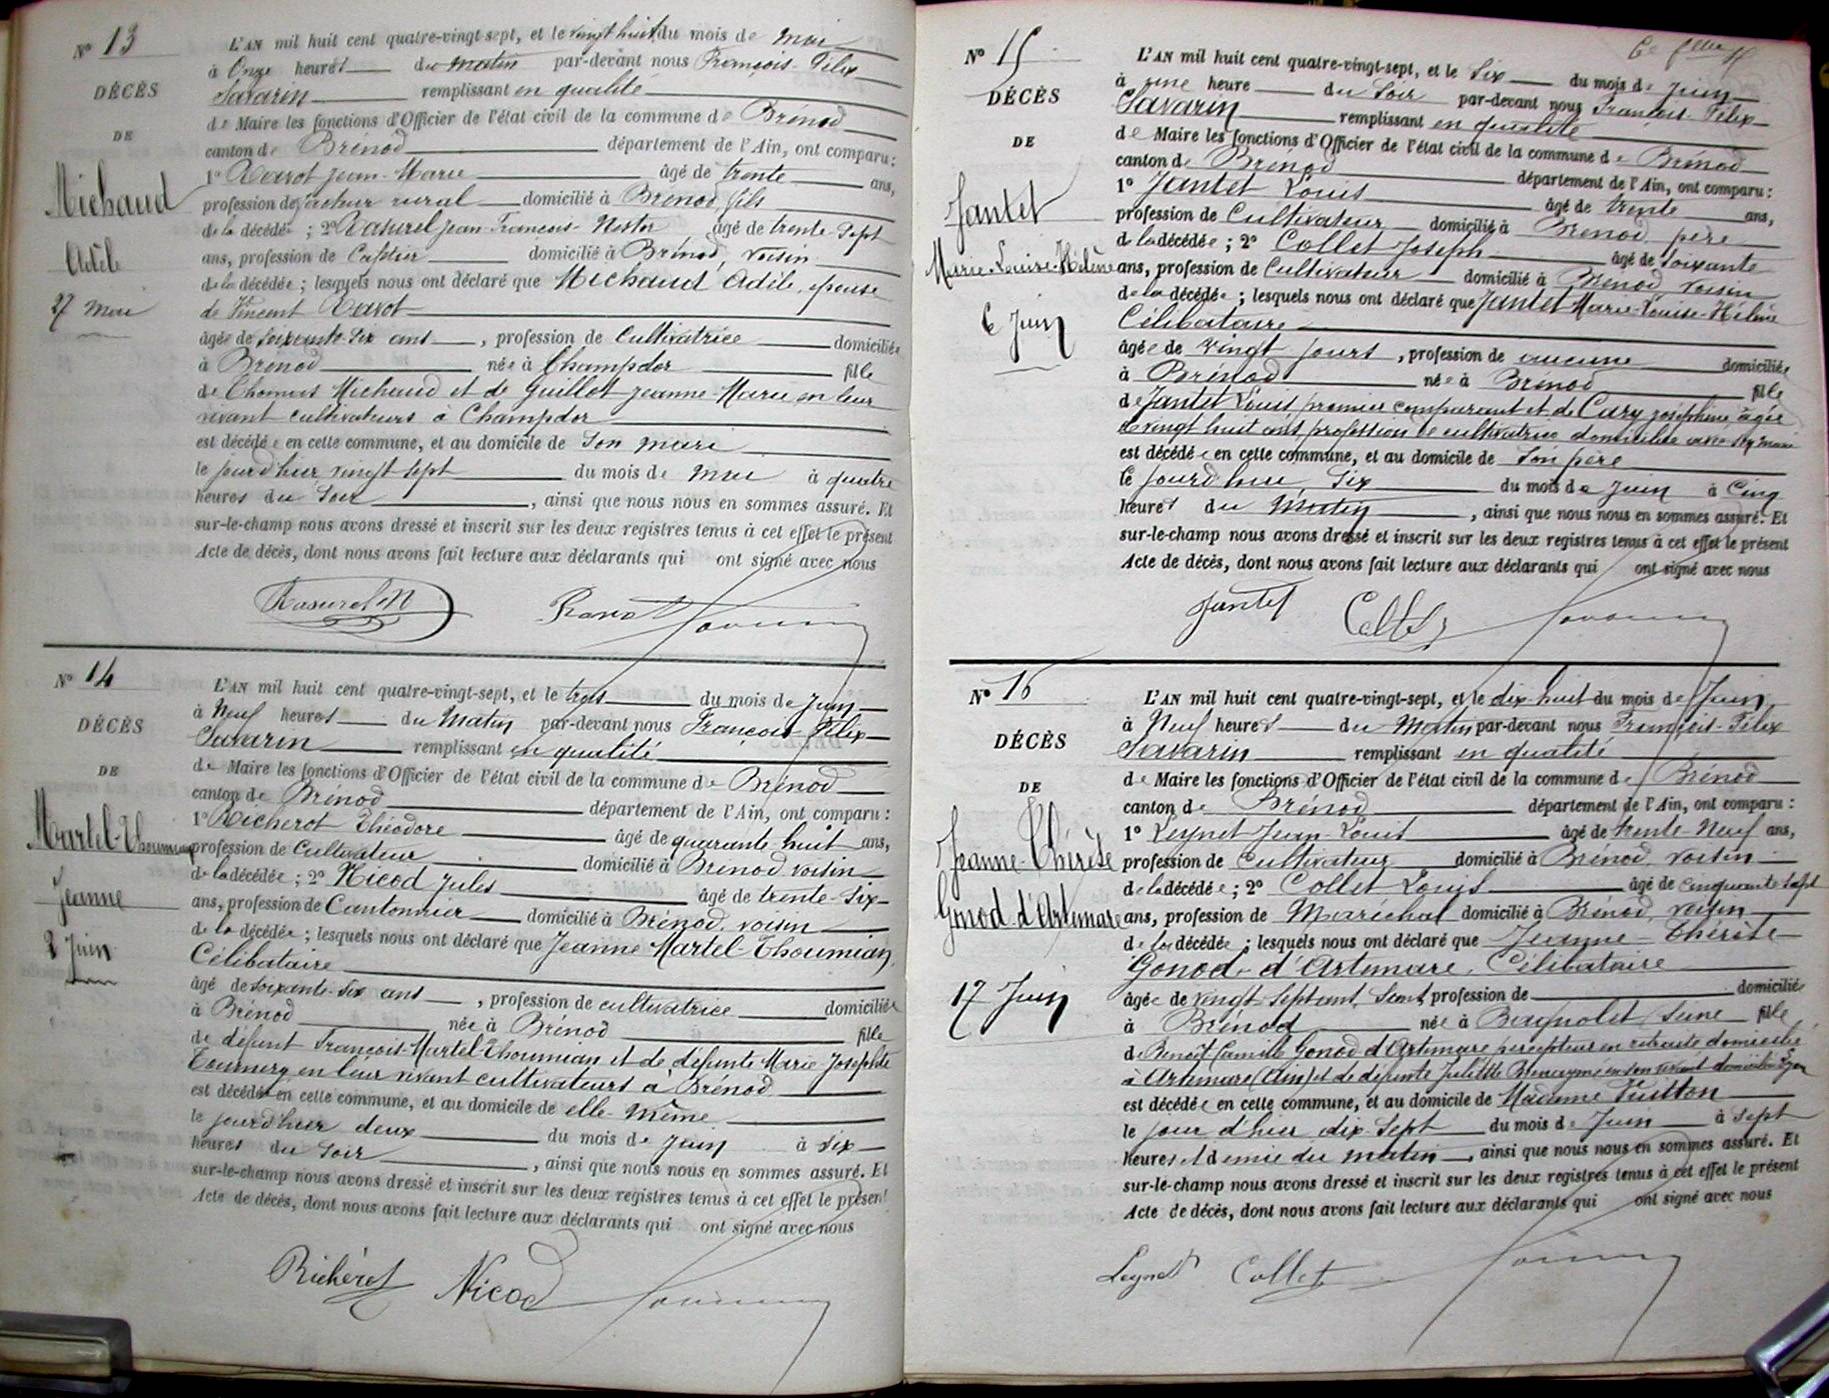 N° 13
DÉCÈS
DE
Michaud
Adèle
27 mai
L'AN mil huit cent quatre-vingt-sept, et le vingt huit du mois de mai
à Onze heures du matin par-devant nous François-Félix
Savarin remplissant en qualité
de Maire les fonctions d'Officier de l'état civil de la commune de Brénod
canton de Brénod département de l'Ain, ont comparu :
1° Ravot Jean-Marie âgé de trente ans,
profession de facteur rural domicilié à Brénod fils
de la décédée ; 2° Rasurel Jean-François-Nestor âgé de trente-sept
ans, profession de domicilié à Brénod, voisin
de la décédée ; lesquels nous ont déclaré que Michaud Adèle, épouse
de Vincent Ravot
âgée de soixante-six ans, profession de Cultivatrice domiciliée
à Brénod née à Champdor fille
de Thomas Michaud et de Guillot Jeanne-Marie en leur
vivant cultivateurs à Champdor
est décédée en cette commune, et au domicile de son mari
le jour d'hier vingt sept du mois de mai à quatre
heures du soir, ainsi que nous nous en sommes assuré. Et
sur-le-champ nous avons dressé et inscrit sur les deux registres tenus à cet effet le présent
Acte de décès, dont nous avons fait lecture aux déclarants qui ont signé avec nous
Rasurel N Ravot Savarin
N° 14
DÉCÈS
DE
Martel-Thoumian
Jeanne
2 Juin
L'AN mil huit cent quatre-vingt-sept, et le trois du mois de Juin
à Neuf heures du Matin par-devant nous François-Félix
Savarin remplissant en qualité
de Maire les fonctions d'Officier de l'état civil de la commune de Brénod
canton de Brénod département de l'Ain, ont comparu :
1° Richerot Théodore âgé de quarante huit ans,
profession de Cultivateur domicilié à Brénod voisin
de la décédée ; 2° Nicod Jules âgé de trente-six
ans, profession de Cantonnier domicilié à Brénod, voisin
de la décédée ; lesquels nous ont déclaré que Jeanne Martel-Thoumian,
Célibataire
âgé de soixante-six ans, profession de cultivatrice domiciliée
à Brénod née à Brénod fille
de défunt François-Martel-Thoumian et de défunte Marie Josephte
en leur vivant cultivateurs à Brénod
est décédée en cette commune, et au domicile de elle-même
le jour d'hier deux du mois de Juin à six
heures du soir, ainsi que nous nous en sommes assuré. Et
sur-le-champ nous avons dressé et inscrit sur les deux registres tenus à cet effet le présent
Acte de décès, dont nous avons fait lecture aux déclarants qui ont signé avec nous
Richerot Nicod Savarin
N° 15
DÉCÈS
DE
Jantet
Marie-Louise-Hélène
6 Juin
L'AN mil huit cent quatre-vingt-sept, et le six du mois de Juin
à une heure du soir par-devant nous François-Félix
Savarin remplissant en qualité
de Maire les fonctions d'Officier de l'état civil de la commune de Brénod
canton de Brénod département de l'Ain, ont comparu :
1° Jantet Louis âgé de trente ans,
profession de Cultivateur domicilié à Brénod père
de la décédée ; 2° Collet Joseph âgé de soixante
ans, profession de Cultivateur domicilié à Brénod voisin
de la décédée ; lesquels nous ont déclaré que Jantet Marie-Louise-Hélène
Célibataire
âgée de vingt jours, profession de aucune domiciliée
à Brénod née à Brénod fille
de Jantet Louis, premier comparant et de Cary Joséphine, âgée
de vingt huit ans, profession de cultivatrice domiciliée avec son mari
est décédée en cette commune, et au domicile de son père
le jourd'hui, six du mois de Juin à Cinq
heures du Matin, ainsi que nous nous en sommes assuré. Et
sur-le-champ nous avons dressé et inscrit sur les deux registres tenus à cet effet le présent
Acte de décès, dont nous avons fait lecture aux déclarants qui ont signé avec nous
Jantet Collet Savarin
N° 16
DÉCÈS
DE
Jeanne-Thérèse
Gonod d'Artemare
17 Juin
L'AN mil huit cent quatre-vingt-sept, et le dix-huit du mois de Juin
à Neuf heures du Matin par-devant nous François-Félix
Savarin remplissant en qualité
de Maire les fonctions d'Officier de l'état civil de la commune de Brénod
canton de Brénod département de l'Ain, ont comparu :
1° Leynet Jean-Louis âgé de trente-Neuf ans,
profession de Cultivateur domicilié à Brénod, voisin
de la décédée ; 2° Collet Louis âgé de cinquante sept
ans, profession de Maréchal domicilié à Brénod, voisin
de la décédée ; lesquels nous ont déclaré que Jeanne-Thérèse
Gonod-d'Artemare, Célibataire
âgée de vingt sept ans, sans profession de domiciliée
à Brénod née à Bagnolet Seine fille
de Benoît Camille Gonod d'Artemare percepteur en retraite domicilié
à Artemare (Ain) et de défunte Juliette en son vivant domiciliée Lyon
est décédée en cette commune, et au domicile de Madame
le jour d'hier dix-sept du mois de Juin à sept
heures et demie du matin, ainsi que nous nous en sommes assuré. Et
sur-le-champ nous avons dressé et inscrit sur les deux registres tenus à cet effet le présent
Acte de décès, dont nous avons fait lecture aux déclarants qui ont signé avec nous
Leynet Collet Savarin